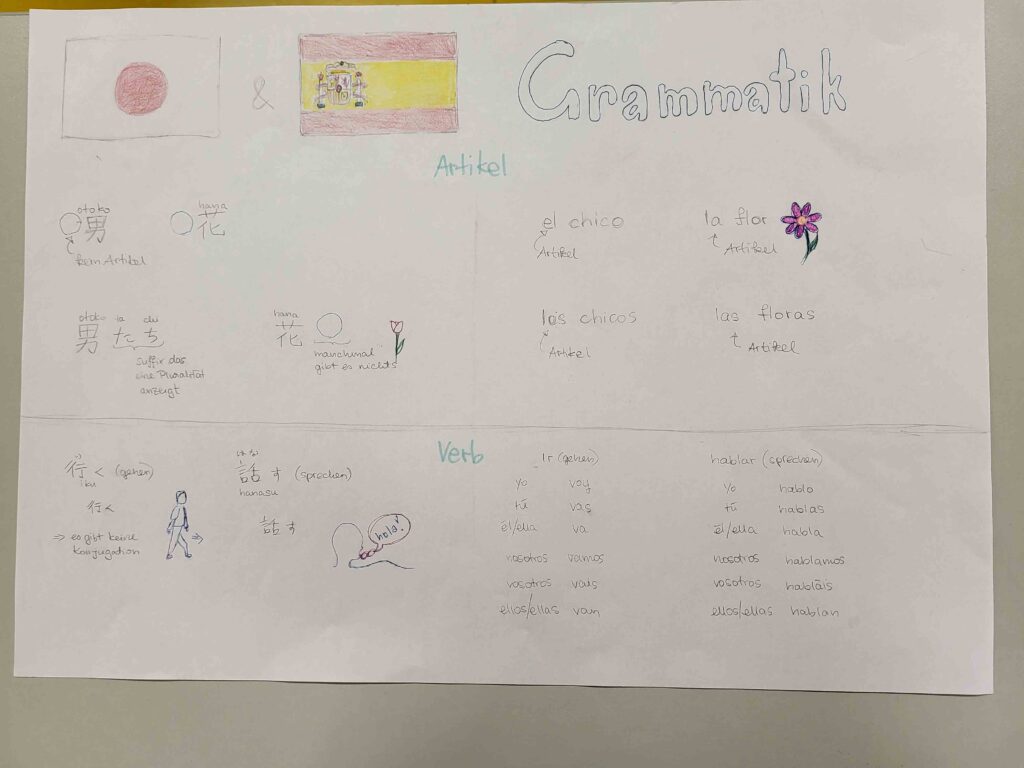 &
Grammatik
Artikel
otoko
男
kein Artikel
hana
花
el chico
Artikel
la flor
Artikel
otoko ta chi
男たち
Suffix das
eine Pluralität
anzeigt
hana
花
manchmal
gibt es nichts
los chicos
Artikel
las floras
Artikel
Verb
行く (gehen)
iku
行く
⇒ es gibt keine
Konjugation
はな
話す (sprechen)
hanasu
話す
hola!
Ir (gehen)
yo voy
tú vas
él/ella va
nosotros vamos
vosotros vais
ellos/ellas van
hablar (sprechen)
yo hablo
tú hablas
él/ella habla
nosotros hablamos
vosotros habláis
ellos/ellas hablan